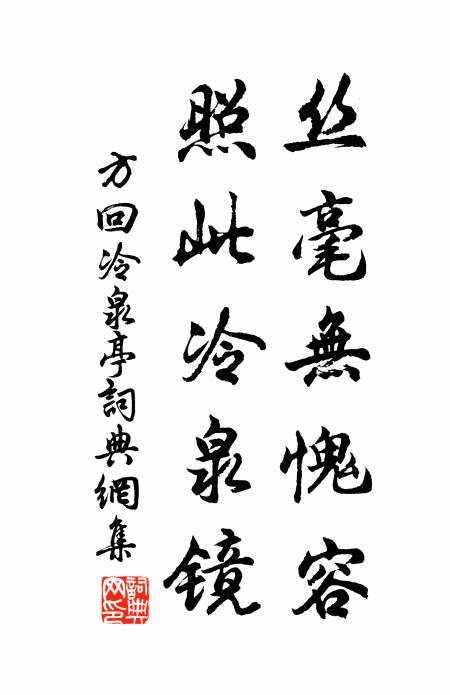 丝毫無愧容
照此冷泉镜
方回冷泉亭詞典網集
詞典網印